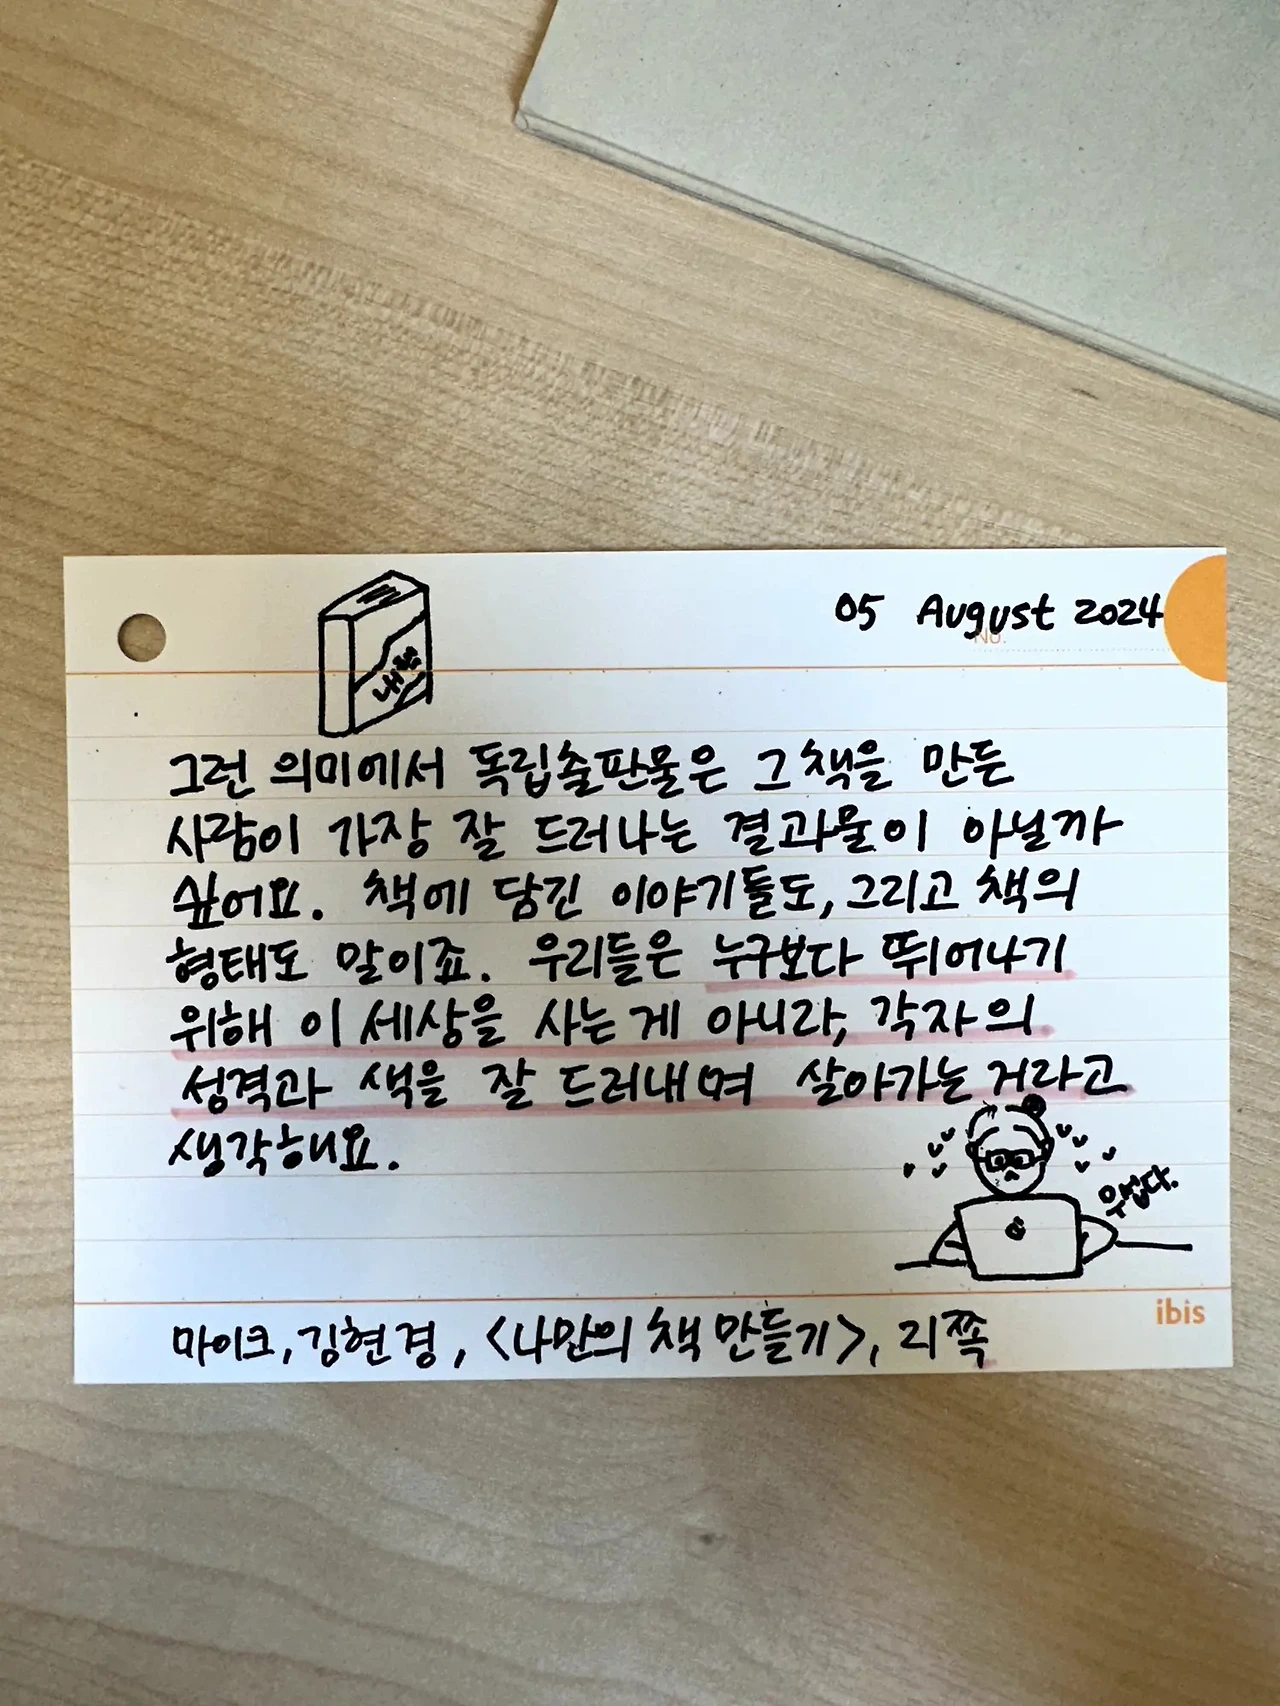 05 August 2024
No.
내 책
그런 의미에서 독립출판물은 그 책을 만든
사람이 가장 잘 드러나는 결과물이 아닐까
싶어요. 책에 담긴 이야기들도, 그리고 책의
형태도 말이죠. 우리들은 누구보다 뛰어나기
위해 이 세상을 사는 게 아니라, 각자의
성격과 색을 잘 드러내며 살아가는 거라고
생각해요.
우겹다.
ibis
마이크, 김현경, <나만의 책 만들기>, 리쪽